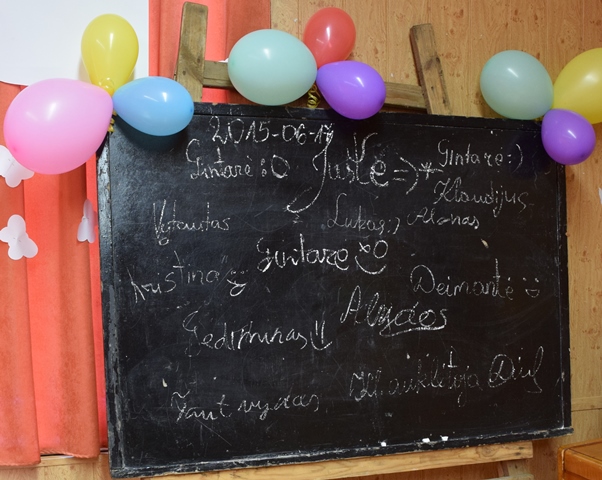 2015-06-17
Gintarė :O Justė :)* Gintarė :)
Klaudijus
Vytautas Lukas :) Alanas
Gintarė
Kristina Deimantė
Gediminas
Tautvydas auklėtoja